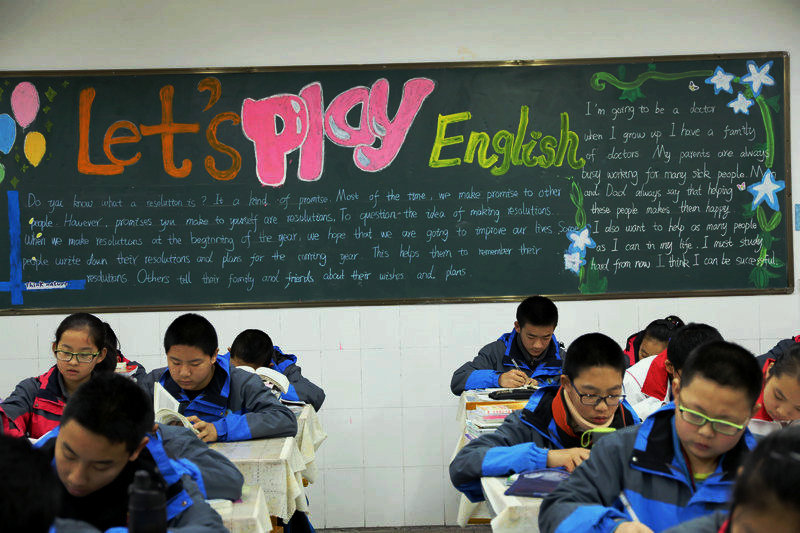 Let's play English
Do you know what a resolution is? It a kind of promise. Most of the time, we make promise to other
people. However, promises you make to yourself are resolutions. To question the idea of making resolutions.
When we make resolutions at the beginning of the year, we hope that we are going to improve our lives. Some
people write down their resolutions and plans for the coming year. This helps them to remember their
resolutions. Others tell their family and friends about their wishes and plans.
I'm going to be a doctor
when I grow up. I have a family
of doctors. My parents are always
busy working for many sick people. M
and Dad always say that helping
these people makes them happy.
I also want to help as many people
as I can in my life. I must study
hard from now. I think I can be successful